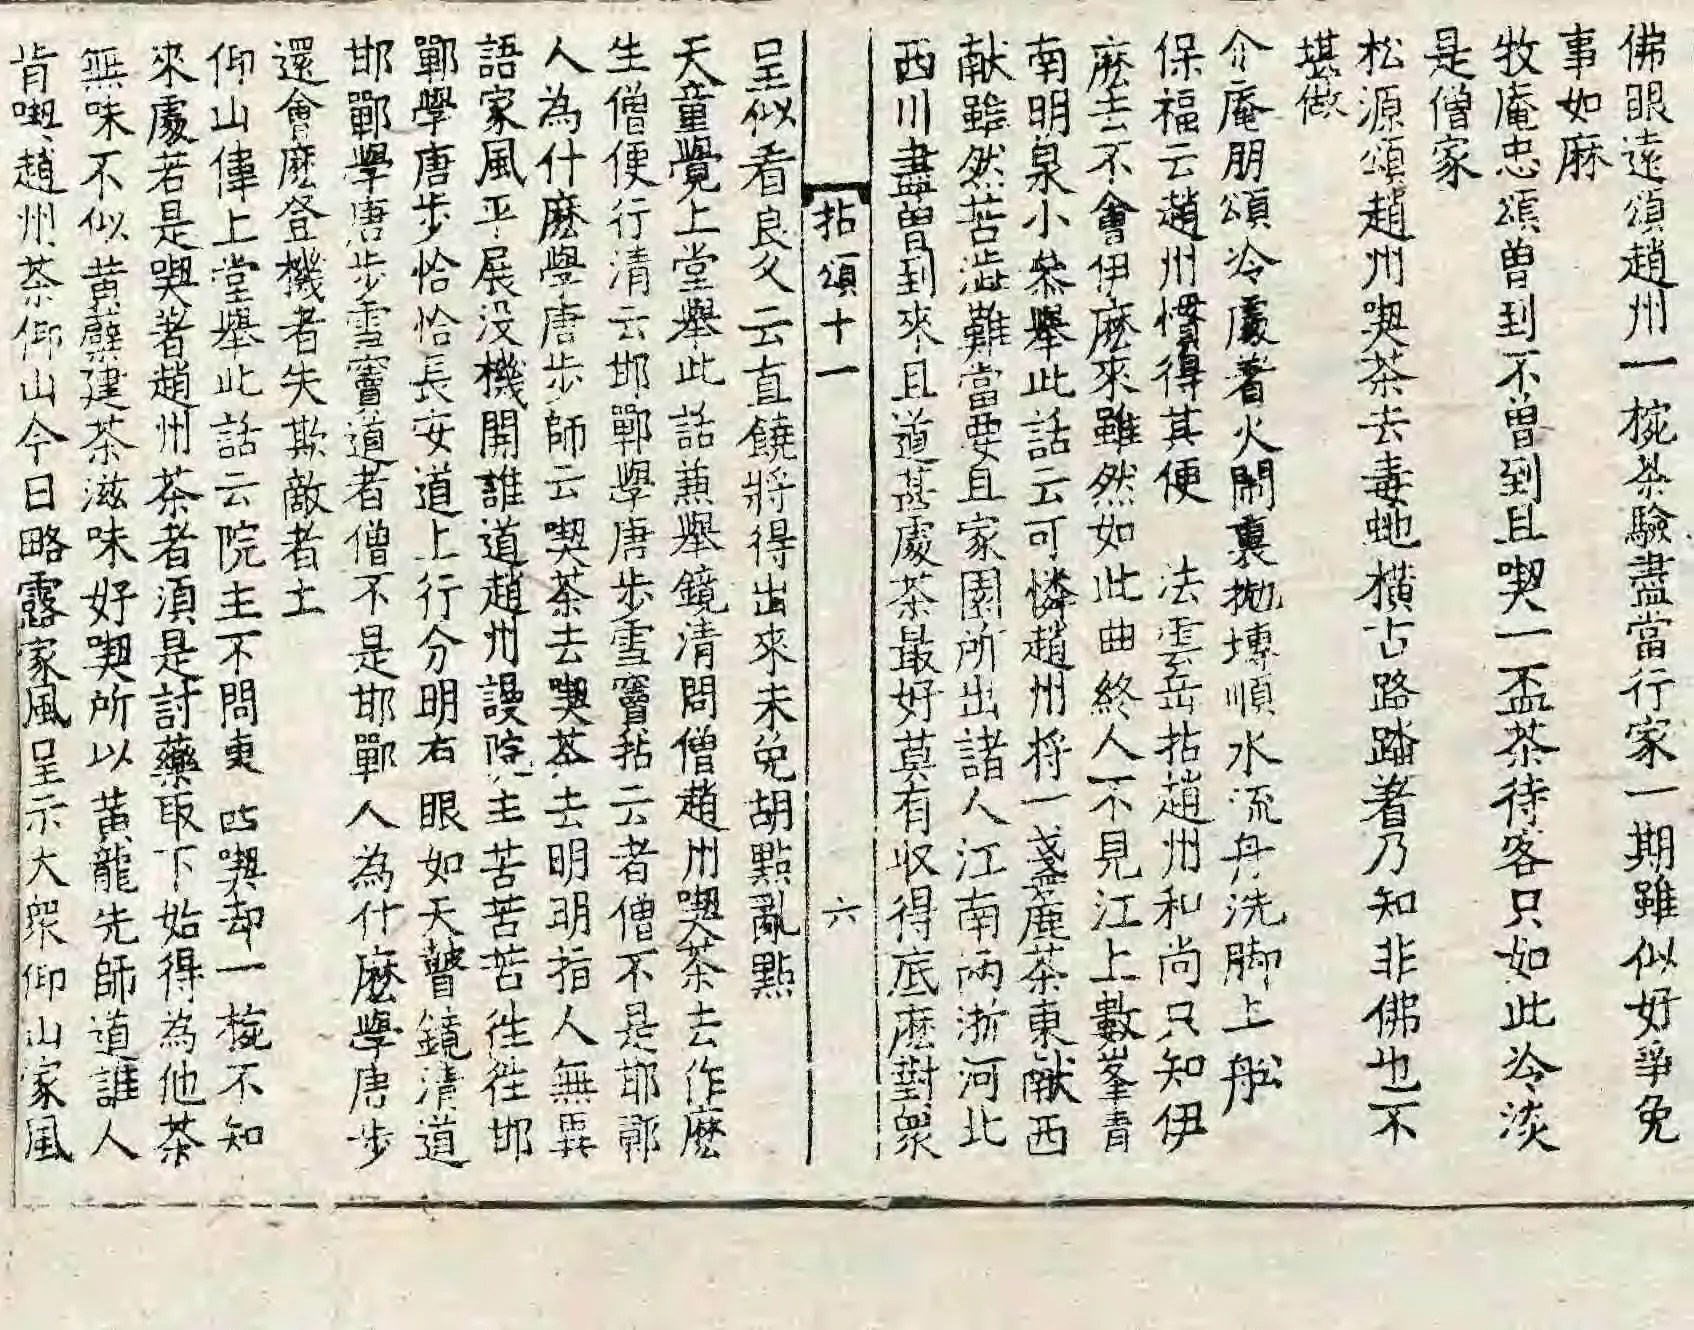 佛眼遠頌趙州一椀茶驗盡當行家一期雖似好爭免
事如麻
牧庵忠頌曽到不曽到且喫一盃茶待客只如此冷淡
是僧家
松源頌趙州喫茶去毒虵橫古路踏着乃知非佛也不
堪做
介庵朋頌冷處着火閙裏抛塼順水流舟洗脚上舩
保福云趙州慣得其便 法雲岳拈趙州和尚只知伊
麽去不會伊麽來雖然如此曲終人不見江上數峯青
南明泉小叅舉此話云可憐趙州将一盞麁茶東献西
献雖然苦澁難當要且家園所出諸人江南兩浙河北
西川盡曽到來且道甚處茶最好莫有収得底麽對衆
拈頌十一 六
呈似看良久云直饒將得出來未免胡點亂點
天童覺上堂舉此話兼舉鏡清問僧趙州喫茶去作麽
生僧便行清云邯鄲學唐步雪竇拈云者僧不是邯鄲
人為什麽學唐步師云喫茶去喫茶去明明指人無異
語家風平展没機關誰道趙州謾院主苦苦苦徃徃邯
鄲學唐步恰恰長安道上行分明右眼如天瞽鏡清道
邯鄲學唐步雪竇道者僧不是邯鄲人為什麽學唐步
還會麽登機者失欺敵者亡
仰山偉上堂舉此話云院主不問東西喫却一椀不知
來處若是喫着趙州茶者湏是討藥取下始得為他茶
無味不似黄蘗建茶滋味好喫所以黄龍先師道誰人
肯喫趙州茶仰山今日略露家風呈示大衆仰山家風